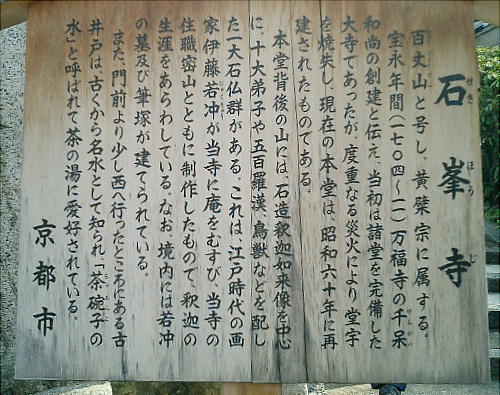 石峯寺
せきほうじ
百丈山と号し、黄檗宗に属する。
宝永年間(一七〇四～一一)万福寺の千呆
せんがい
和尚の創建と伝え、当初は諸堂を完備した
大寺であったが、度重なる災火により堂宇
を焼失し、現在の本堂は、昭和六十年に再
建されたものである。
本堂背後の山には、石造釈迦如来像を中心
に、十大弟子や五百羅漢、鳥獣などを配し
た一大石仏群がある。これは、江戸時代の画
家伊藤若冲が当寺に庵をむすび、当寺の
住職密山とともに制作したもので、釈迦の
生涯をあらわしている。なお、境内には若冲
の墓及び筆塚が建てられている。
また、門前より少し西へ行ったところにある古
井戸は古くから名水として知られ「茶碗子の
水」と呼ばれて茶の湯に愛好されている。
京都市